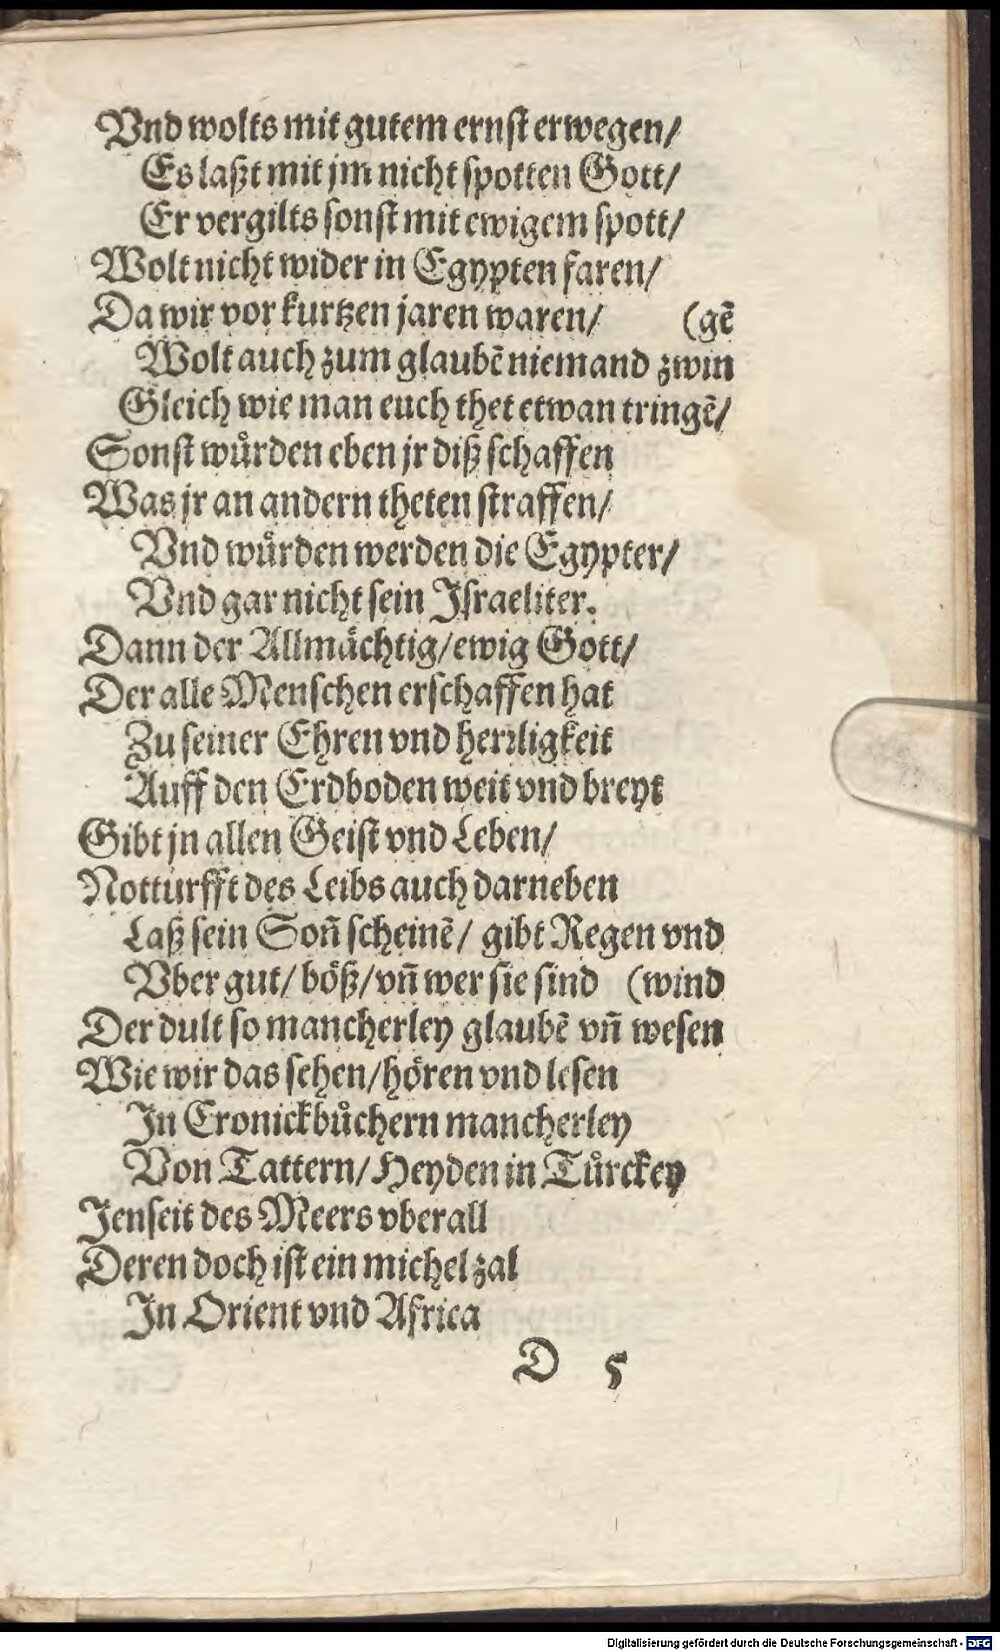 Vnd wolts mit gutem ernst erwegen/
Es laßt mit jm nicht spotten Gott/
Er vergilts sonst mit ewigem spott/
Wolt nicht wider in Egypten faren/
Da wir vor kurtzen jaren waren/ (gẽ
Wolt auch zum glaubẽ niemand zwin
Gleich wie man euch thet etwan tringẽ/
Sonst wuͤrden eben jr diß schaffen
Was jr an andern theten straffen/
Vnd wuͤrden werden die Egypter/
Vnd gar nicht sein Israeliter.
Dann der Allmaͤchtig/ewig Gott/
Der alle Menschen erschaffen hat
Zu seiner Ehren vnd herꝛligkeit
Auff den Erdboden weit vnd breyt
Gibt jn allen Geist vnd Leben/
Notturfft des Leibs auch darneben
Laß sein Soñ scheinẽ/ gibt Regen vnd
Vber gut/ boͤß/vñ wer sie sind (wind
Der dult so mancherley glaubẽ vñ wesen
Wie wir das sehen/hoͤren vnd lesen
In Cronickbuͤchern mancherley
Von Tattern/Heyden in Tuͤrckey
Jenseit des Meers vberall
Deren doch ist ein michel zal
In Orient vnd Africa
D 5
Digitalisierung gefördert durch die Deutsche Forschungsgemeinschaft - DFG